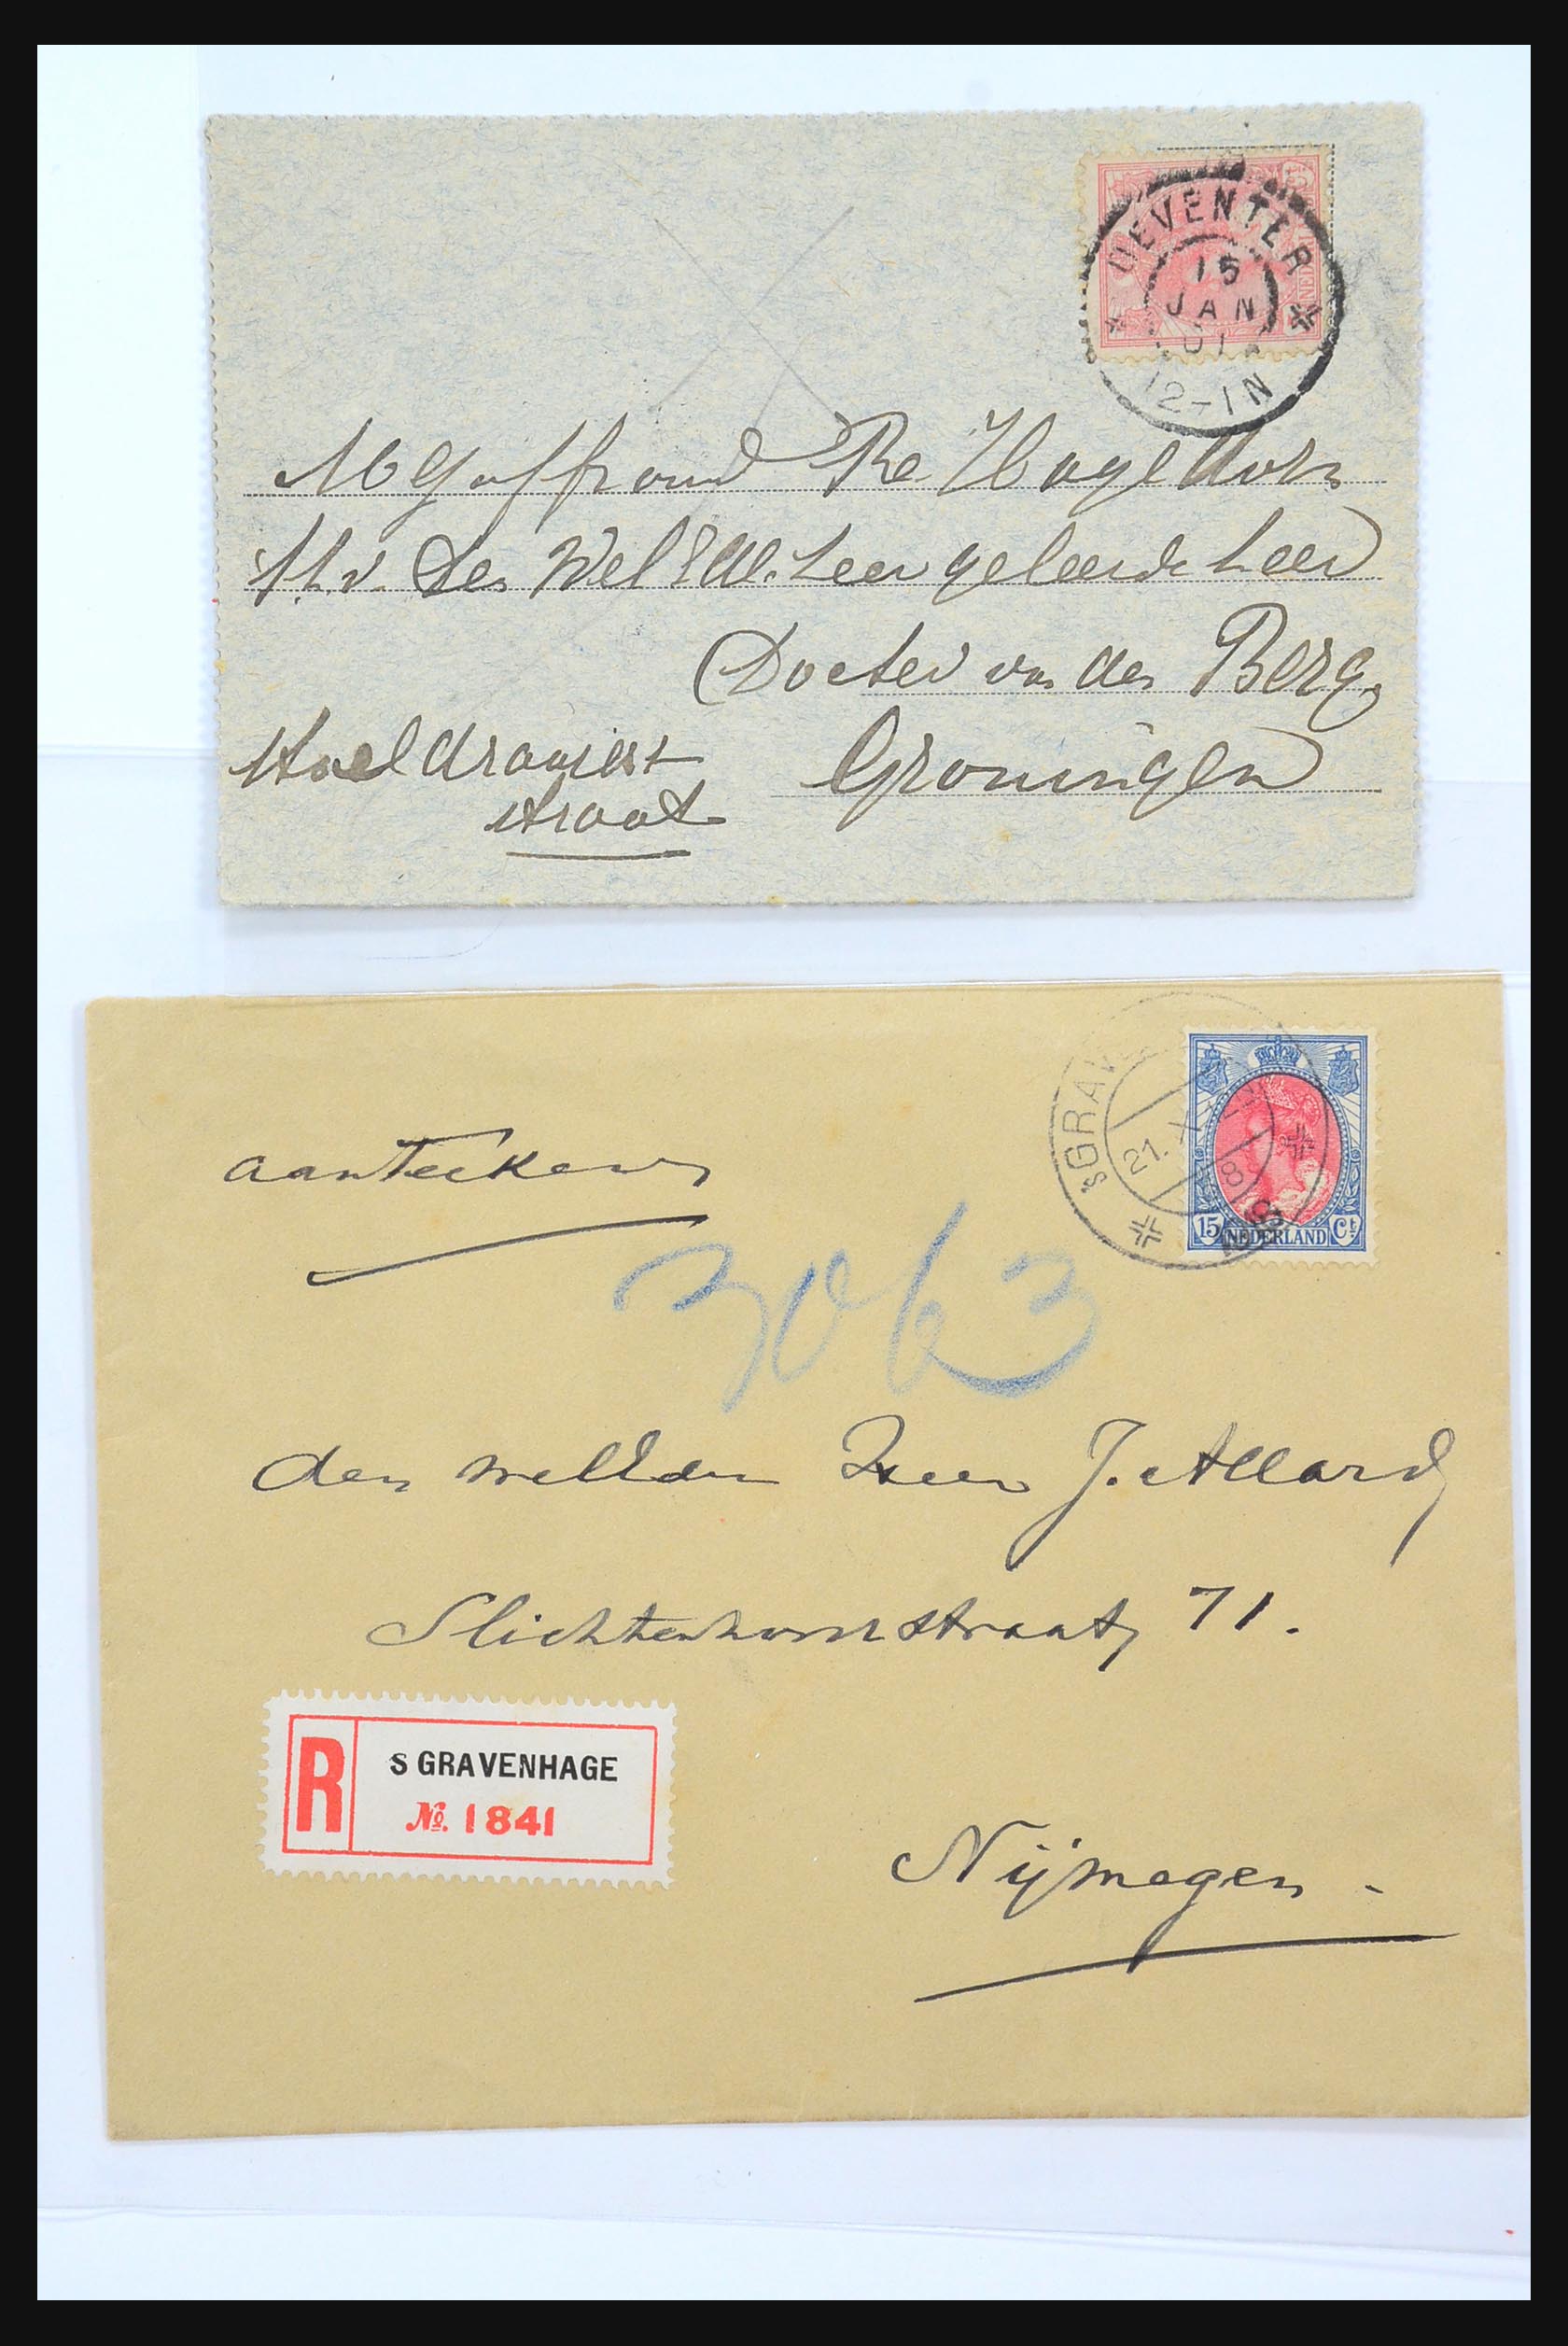 DEVENTER
15
JAN
01
12-1N
Mejuffrouw Re Hagedorn
p/a. Den WelEde. Zeer geleerde Heer
Docter van den Berg.
Stoeldraaierst
straat
Groningen
sGRAV
21.X
8
15 NEDERLAND Ct
aanteekenen
3063
den WelEden Heer J. Allard
Slichtenhorststraat 71.
R
S GRAVENHAGE
No. 1841
Nijmegen -